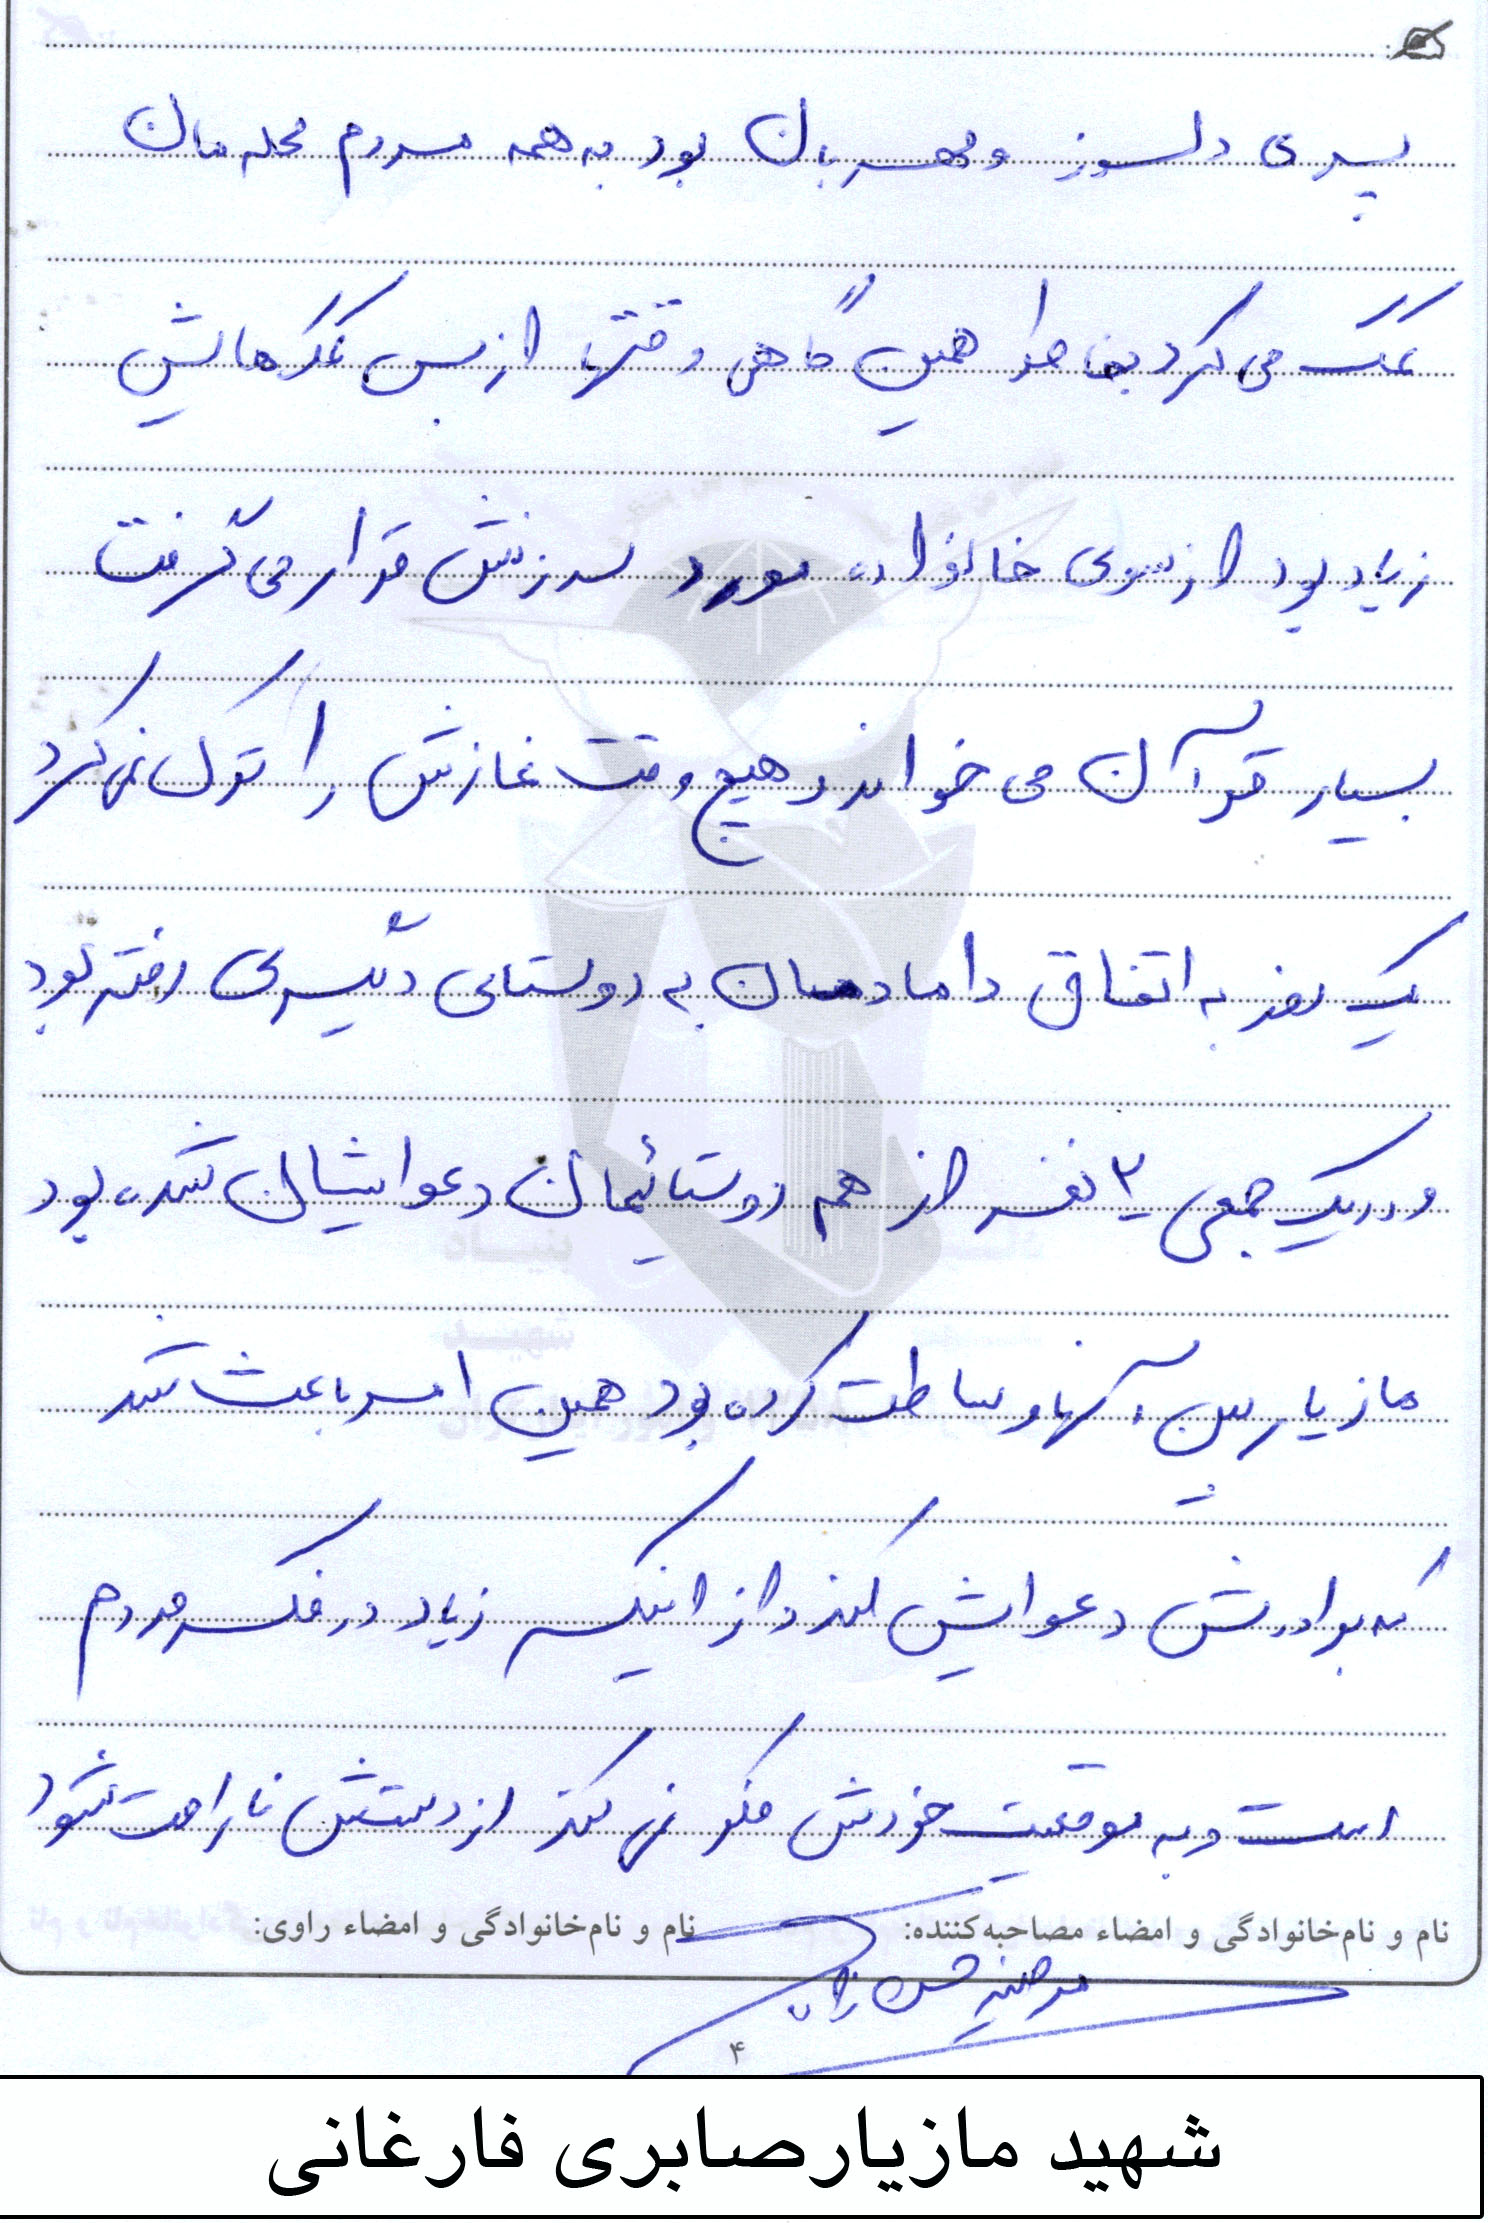 پسری دلسوز و مهربان بود به همه مردم محله مان
کمک می کرد بخاطر همین گاهی وقتها از بس کمکهایش
زیاد بود از سوی خانواده مورد سرزنش قرار می گرفت
بسیار قرآن می خواند و هیچ وقت نمازش را ترک نمی کرد
یک روز به اتفاق دامادمان به روستای دیگری رفته بود
و در یک جمعی ۲ نفر از هم روستائیمان دعوایشان شده بود
مازیار بین آنها وساطت کرده بود همین امر باعث شد
که برادرش دعوایش کند و از اینکه زیاد در فکر مردم
است و به موقعیت خودش فکر نمی کند از دستش ناراحت شود
نام و نام‌خانوادگی و امضاء مصاحبه‌کننده: نام و نام‌خانوادگی و امضاء راوی:
مرضیه
۴
شهید مازیارصابری فارغانی